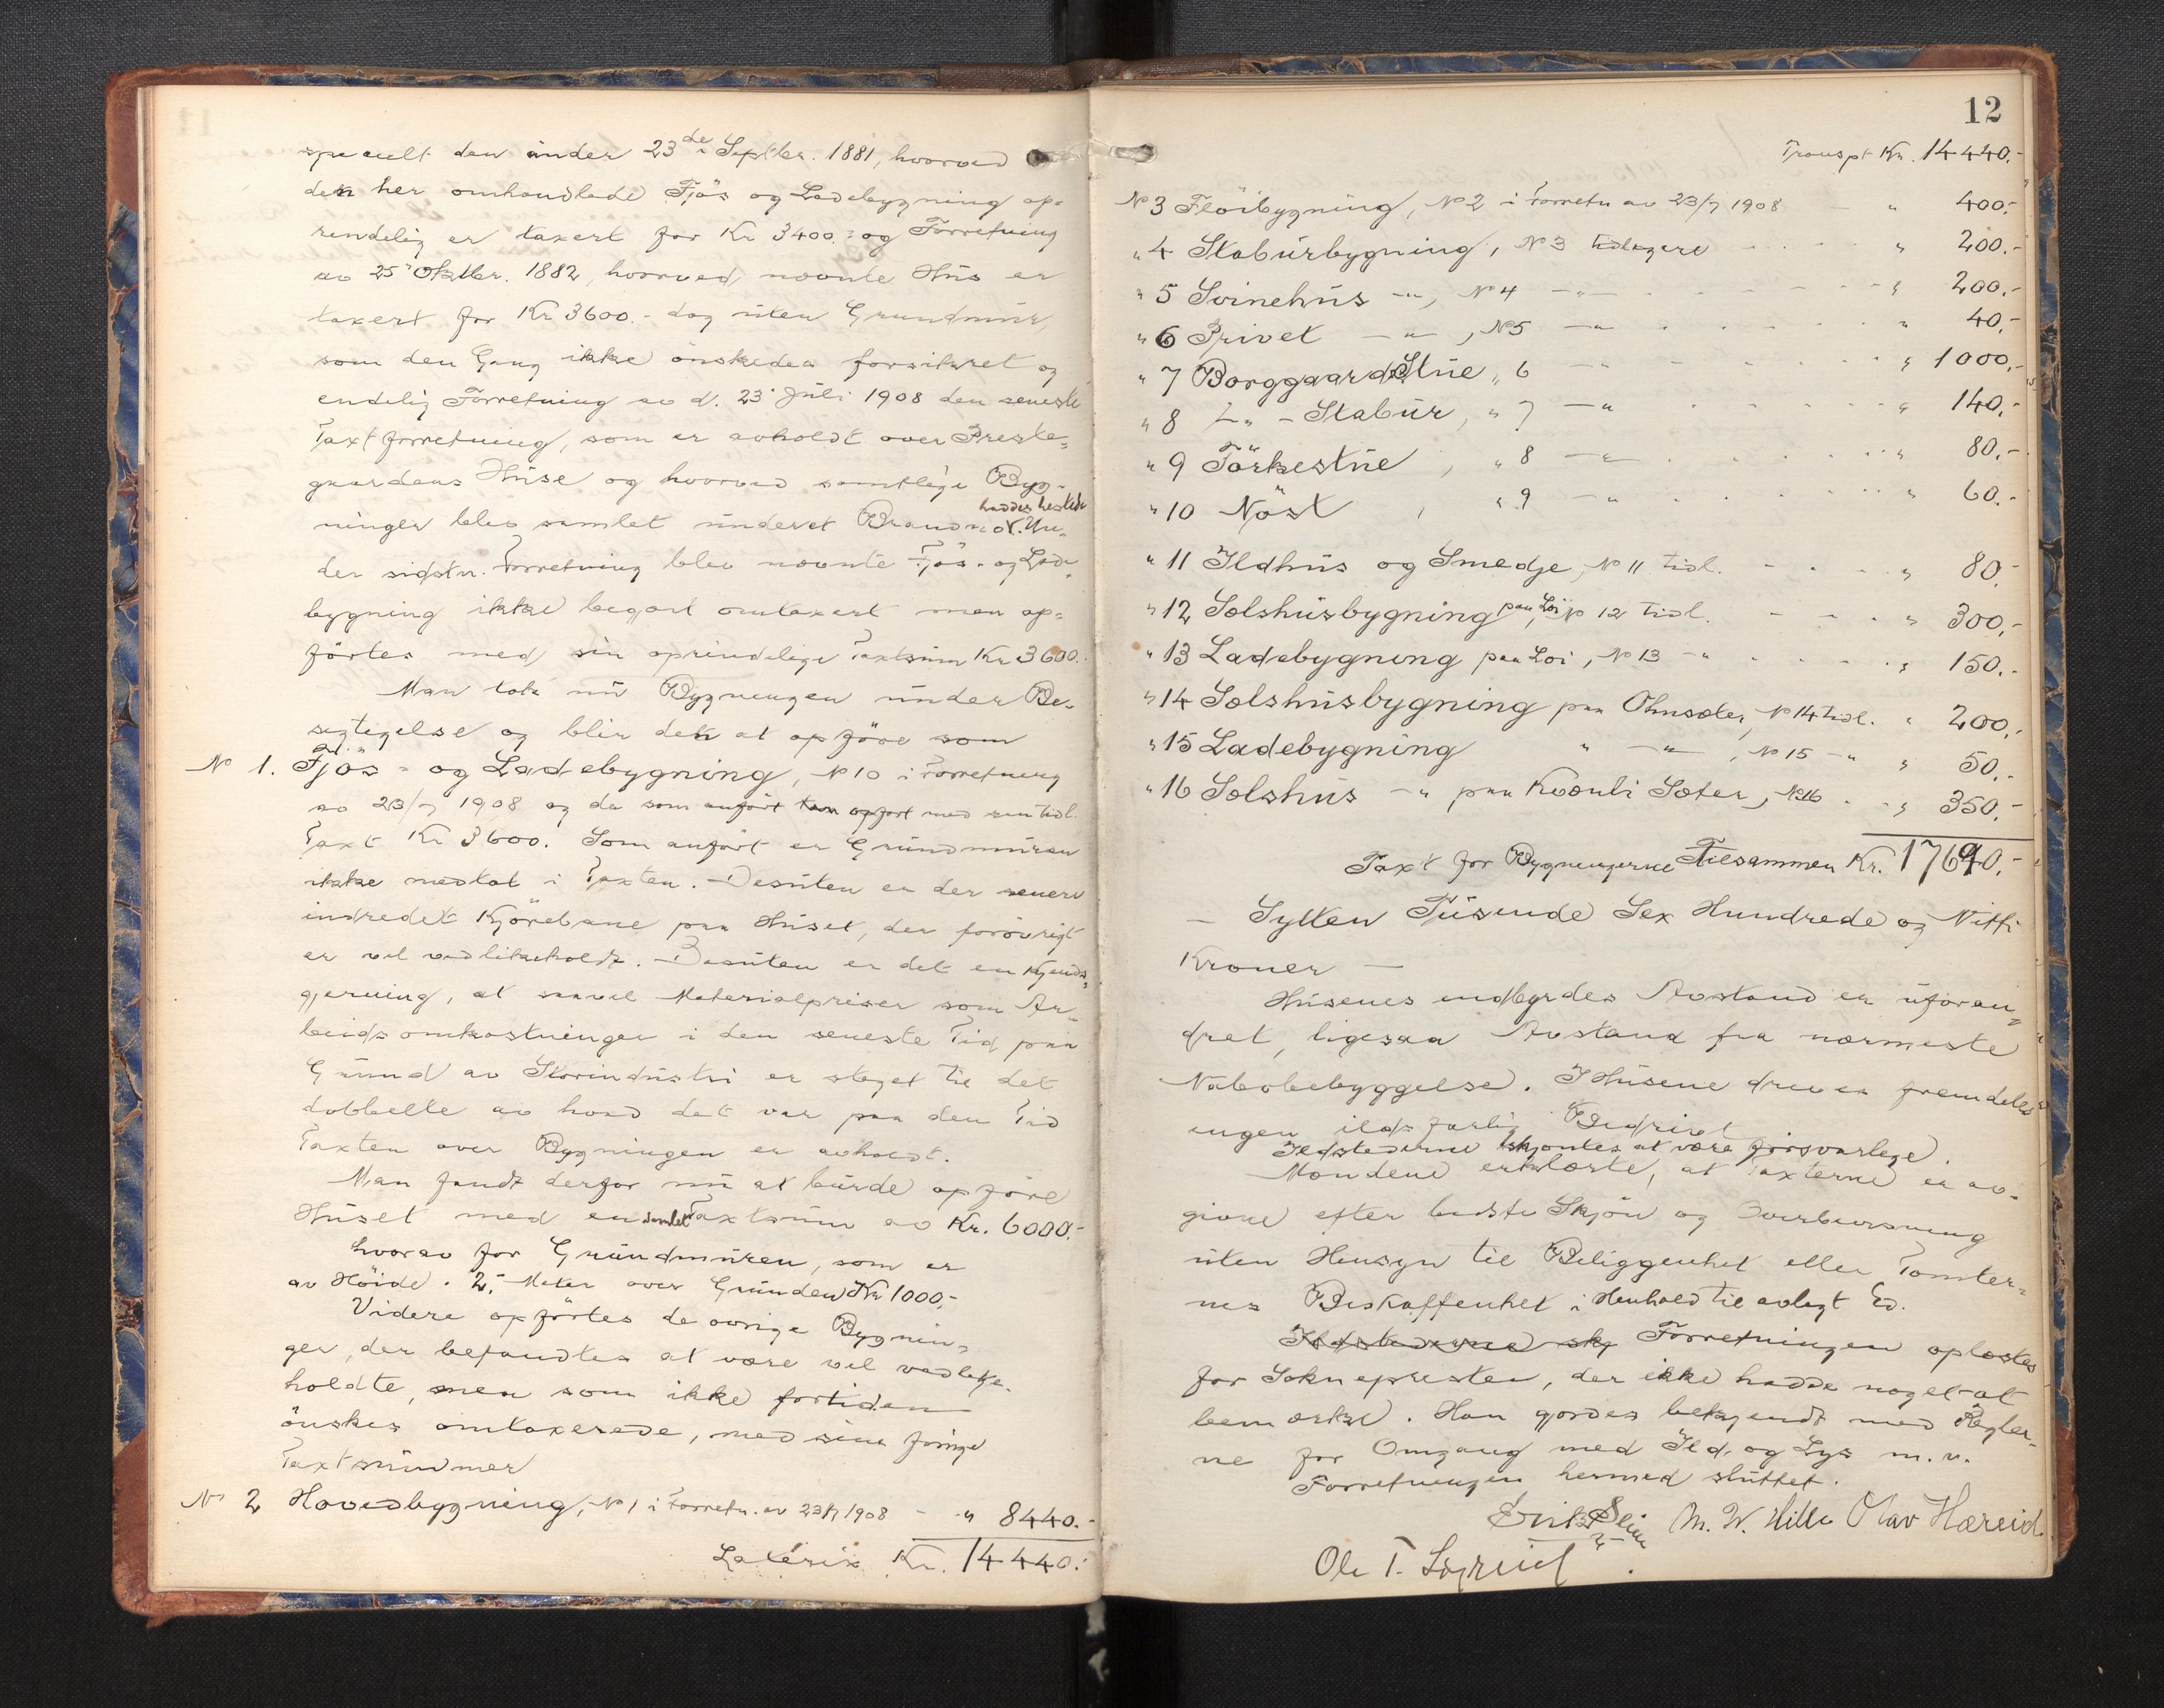 specielt den under 23de Septbr. 1881, hvorved
den her omhandlede Fjös og Ladebygning op-
rindelig er taxert for Kr 3400.- og Forretning
av 25' Oktbr. 1882, hvorved nævnte Hus er
taxert for Kr 3600.- dog uten Grundmur,
som den Gang ikke önskedes forsikret og
endelig Forretning av d. 23' Juli 1908 den seneste
Taxtforretning, som er avholdt over Preste-
gaardens Huse og hvorved samtlige Byg-
hadde heftede
ninger blev samlet under et Brandnr. Un-
der sidstn. Forretning blev nævnte Fjös- og Lade-
bygning ikke begjært omtaxert men op-
förtes med sin oprindelige Taxtsum Kr 3600.
Man tok nu Bygningen under Be-
sigtigelse og blir den at opföre som
No 1. Fjös- og Ladebygning, No 10 i Forretning
av 23/7 1908 og da som anfört opfört med sin tidl.
Taxt Kr 3600. Som anfört er Grundmuren
ikke medtat i Taxten. Desuten er der senere
indredet Kjörebane paa Huset, der forövrigt
er vel vedlikeholdt. Desuten er det en Kjends-
gjerning, at saavel Materialpriser som Ar-
beidsomkostninger i den seneste Tid paa
Grund av Storindustri er steget til det
dobbelte av hvad det var paa den Tid
Taxten over Bygningen er avholdt.
Man fandt derfor nu at burde opföre
Huset med en samlet Taxtsum av Kr. 6000.-
hvorav for Grundmuren, som er
av Höide 2,- Meter over Grunden Kr 1000,-
Videre opförtes de övrige Bygnin-
ger, der befandtes at være vel vedlike-
holdte, men som ikke fortiden
önskes omtaxerede, med sine forrige
Taxtsummer
No 2 Hovedbygning, No 1 i Forretn. av 23/7 1908 - " 8440.-
Laterix Kr. 14440.-
12
Transpt Kr. 14440.-
No 3 Flöibygning, No 2 i Forretn av 23/7 1908 - " 400.-
" 4 Stabursbygning, No 3 tidligere " 200.-
" 5 Svinehus -"-, No 4 -"- " 200.-
" 6 Privet -"-, No 5 -"- " 40.-
" 7 Borggaards Stue, " 6 -"- " 1000.-
" 8 -"- Stabur, " 7 -"- " 140.-
" 9 Törkestue, " 8 -"- " 80.-
" 10 Nöst, " 9 -"- " 60.-
" 11 Ildhus og Smedje, No 11 tidl. " 80.-
" 12 Sælshusbygning paa Loi, No 12 tidl. " 300.-
" 13 Ladebygning paa Loi, No 13 -"- " 150.-
" 14 Sælshusbygning paa Ohnsæter, No 14 tidl. " 200.-
" 15 Ladebygning " -"-, No 15 -"- " 50.-
" 16 Sælshus -"- paa Kvænli Sæter, No 16 - " 350.-
Taxt for Bygningerne Tilsammen Kr. 17690.-
- Sytten Tusende Sex Hundrede og Nitti
Kroner -
Husenes indbyrdes Avstand er uforan-
dret, ligesaa Avstand fra nærmeste
Nabobebyggelse. I Husene drives fremdeles
ingen ildsfarlig Bedrivt
Ildstederne skjöntes at være forsvarlige.
Mændene erklærte, at Taxterne er av-
givne efter bedste Skjön og Overbevisning
uten Hensyn til Beliggenhet eller Tomter-
nes Beskaffenhet i Henhold til avlagt Ed.
Ildstederne skj Forretningen oplæstes
for Soknepresten, der ikke hadde noget at
bemærke. Han gjordes bekjendt med Regler-
ne for Omgang med Ild og Lys m. v.
Forretningen hermed sluttet.
M. W. Hille Olav Hæreid
Ole T.